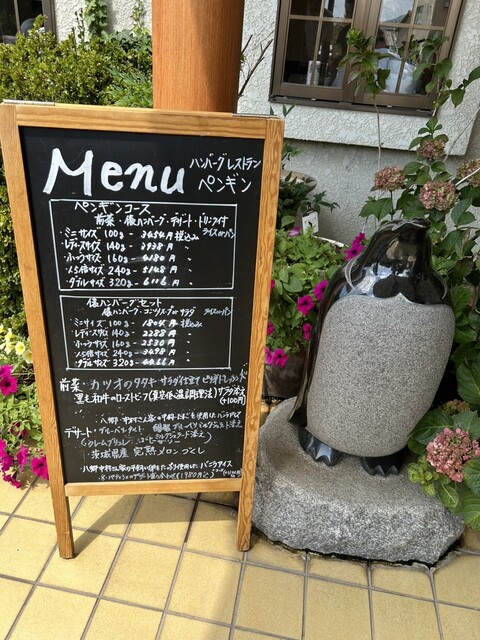 Menu
ハンバーグレストラン
ペンギン
ペンギンコース
前菜・俵ハンバーグ・デザート・ドリンク付
ライスorパン
・ミニサイズ 100g - 3454円 税込み
・レディースサイズ 140g - 3938円 〃
・ふつうサイズ 160g - 4180円 〃
・1.5倍サイズ 240g - 5148円 〃
・ダブルサイズ 320g - 6116円 〃
俵ハンバーグセット
俵ハンバーグ・コンソメスープorサラダ
ライスorパン
・ミニサイズ 100g - 1804円 税込み
・レディースサイズ 140g - 2288円 〃
・ふつうサイズ 160g - 2530円 〃
・1.5倍サイズ 240g - 3498円 〃
・ダブルサイズ 320g - 4466円 〃
前菜・カツオのタタキ サラダ仕立て
黒毛和牛のローストビーフ(真空低温調理法) サラダ添え
(+100円)
デザート
添え
・クレームブリュレ
・茨城県産 完熟メロン
使用したバニラアイス